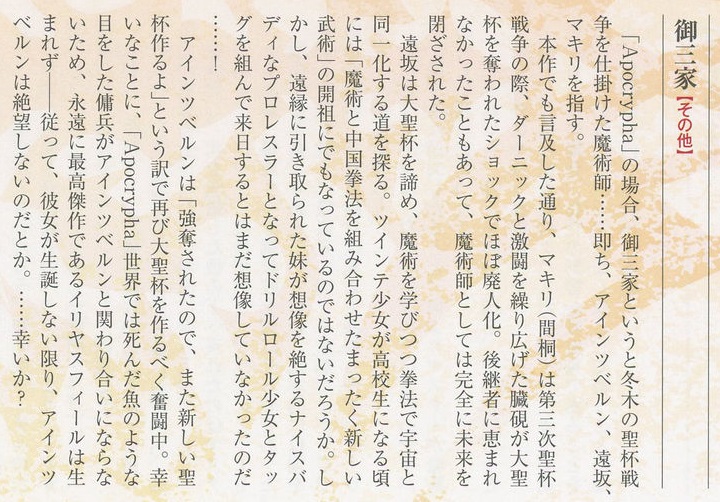 御三家【その他】
「Apocrypha」の場合、御三家というと冬木の聖杯戦
争を仕掛けた魔術師……即ち、アインツベルン、遠坂、
マキリを指す。
本作でも言及した通り、マキリ（間桐）は第三次聖杯
戦争の際、ダーニックと激闘を繰り広げた臓硯が大聖
杯を奪われたショックでほぼ廃人化。後継者に恵まれ
なかったこともあって、魔術師としては完全に未来を
閉ざされた。
遠坂は大聖杯を諦め、魔術を学びつつ拳法で宇宙と
同一化する道を探る。ツインテ少女が高校生になる頃
には「魔術と中国拳法を組み合わせたまったく新しい
武術」の開祖にでもなっているのではないだろうか。し
かし、遠縁に引き取られた妹が想像を絶するナイスバ
ディなプロレスラーとなってドリルロール少女とタッ
グを組んで来日するとはまだ想像していなかったのだ
……！
アインツベルンは「強奪されたので、また新しい聖
杯作るよ」という訳で再び大聖杯を作るべく奮闘中。幸
いなことに、「Apocrypha」世界では死んだ魚のような
目をした傭兵がアインツベルンと関わり合いにならな
いため、永遠に最高傑作であるイリヤスフィールは生
まれず――従って、彼女が生誕しない限り、アインツ
ベルンは絶望しないのだとか。……幸いか？